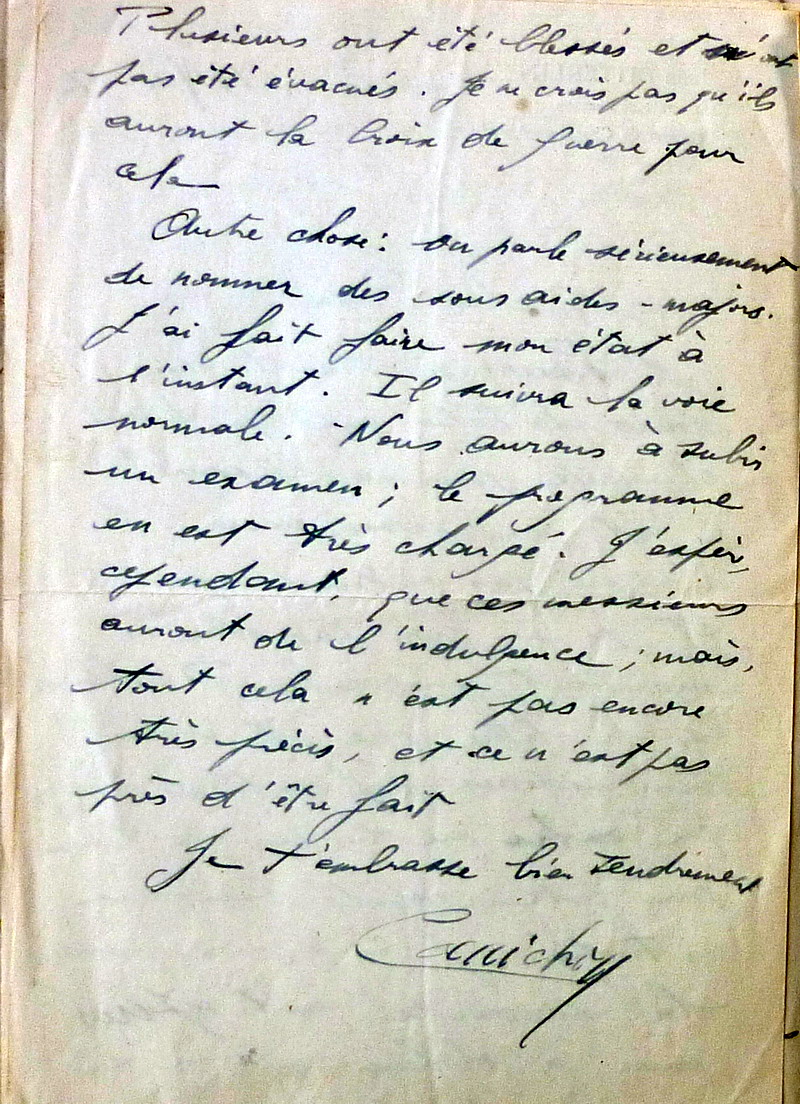 Plusieurs ont été blessés et n'ont
pas été évacués. Je ne crois pas qu'ils
auront la Croix de guerre pour
cela
Autre chose : on parle sérieusement
de nommer des sous aides-majors.
J'ai fait faire mon état à
l'instant. Il suivra la voie
normale. Nous aurons à subir
un examen ; le programme
en est très chargé. J'espère,
cependant, que ces messieurs
auront de l'indulgence ; mais,
tout cela n'est pas encore
très précis, et ce n'est pas
près d'être fait
Je t'embrasse bien tendrement